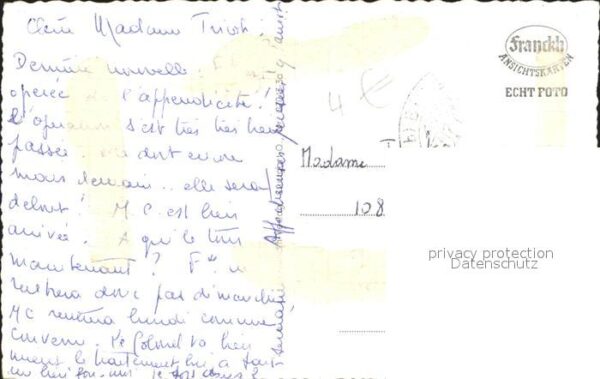 Chère Madame
Dernière nouvelle : F
opérée de l'appendicite !
l'opération s'est très très bien
passée. elle doit encore
mais demain elle sera
debout ! M C. est bien
arrivée. A qui le tour
maintenant ? F** n
rentrera donc pas dimanche
MC rentrera lundi comme
convenu. Le Colonel va bien
le traitement lui a fait
un bien
Franckh
ANSICHTSKARTEN
ECHT FOTO
4 €
Madame T
108
privacy protection
Datenschutz